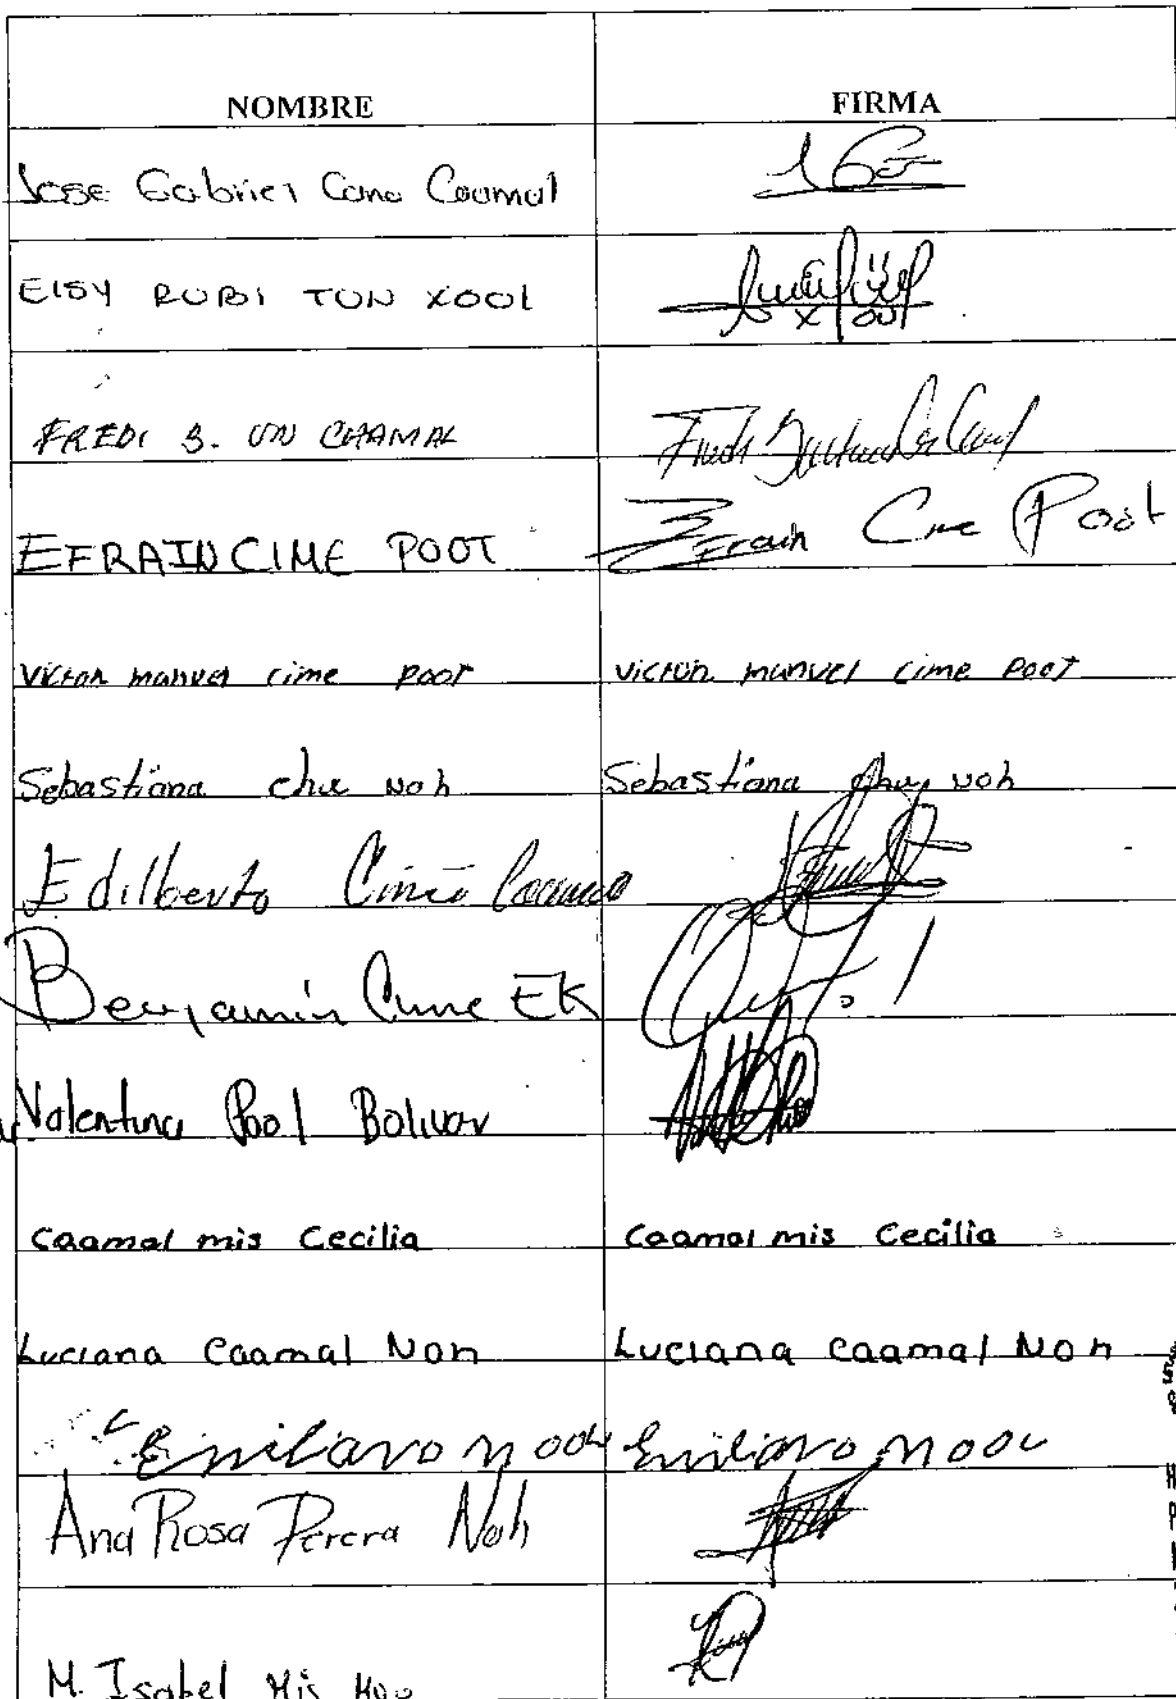 NOMBRE FIRMA
Jose Gabriel Cano Caamal
Elsy RUBI TUN XOOL
FREDI S. UN CHAMAL
EFRAIN CIME POOT Efrain Cime Poot
Victor manuel cime poot Victor manuel cime poot
Sebastiana chue Noh Sebastiana chue Noh
Edilberto Cime Caamal
Benjamin Cime EK
Valentina Pool Bolivar
Caamal mis Cecilia Caamal mis Cecilia
Luciana Caamal Noh Luciana Caamal Noh
Emiliano mooc Emiliano mooc
Ana Rosa Perera Noh
M. Isabel Mis